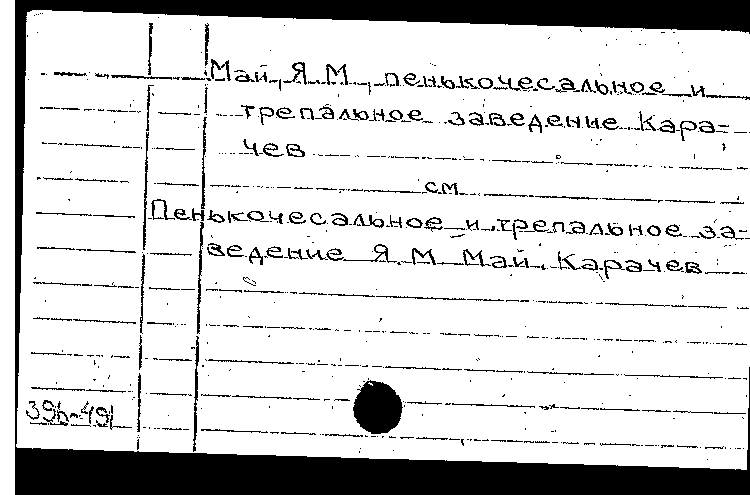 Май, Я.М., пенькочесальное и
трепальное заведение Кара=
чев
см
Пенькочесальное и трепальное за=
ведение Я.М. Май. Карачев
396-491